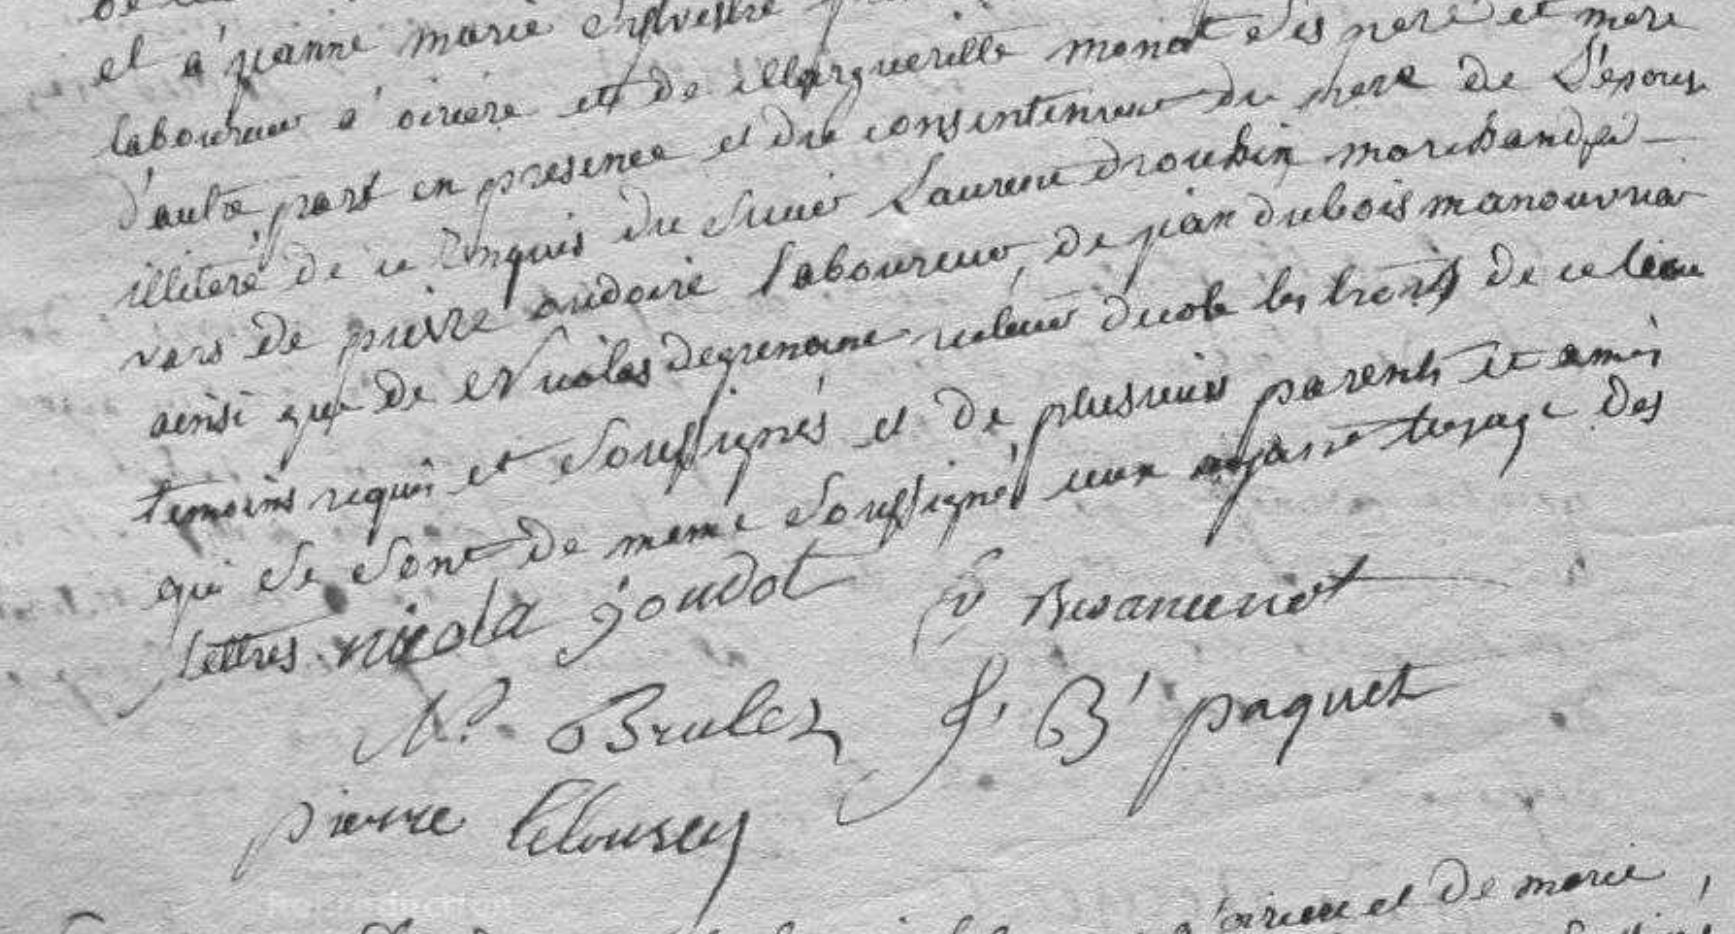 et a jeanne marie Sylvestre
laboureur a oiriere et de Margueritte monot ses pere et mere
d'autre part en presence et du consentement du pere de L'epoux
illiteré de ce enquis du Sieur Laurent drouhin marchand de
vars de pierre andoire laboureur, de jean dubois manouvrier
ainsi que de Nicolas degrenane recteur decole les trois de ce lieu
temoins requis et Soussignés et de plusieurs parents et amis
qui Se Sont de meme Soussignés ceux ayant lusage des
lettres. nicola goudot
Besancenot
N. Brulez J. B. paquet
pierre lelousey
oiriere et de marie